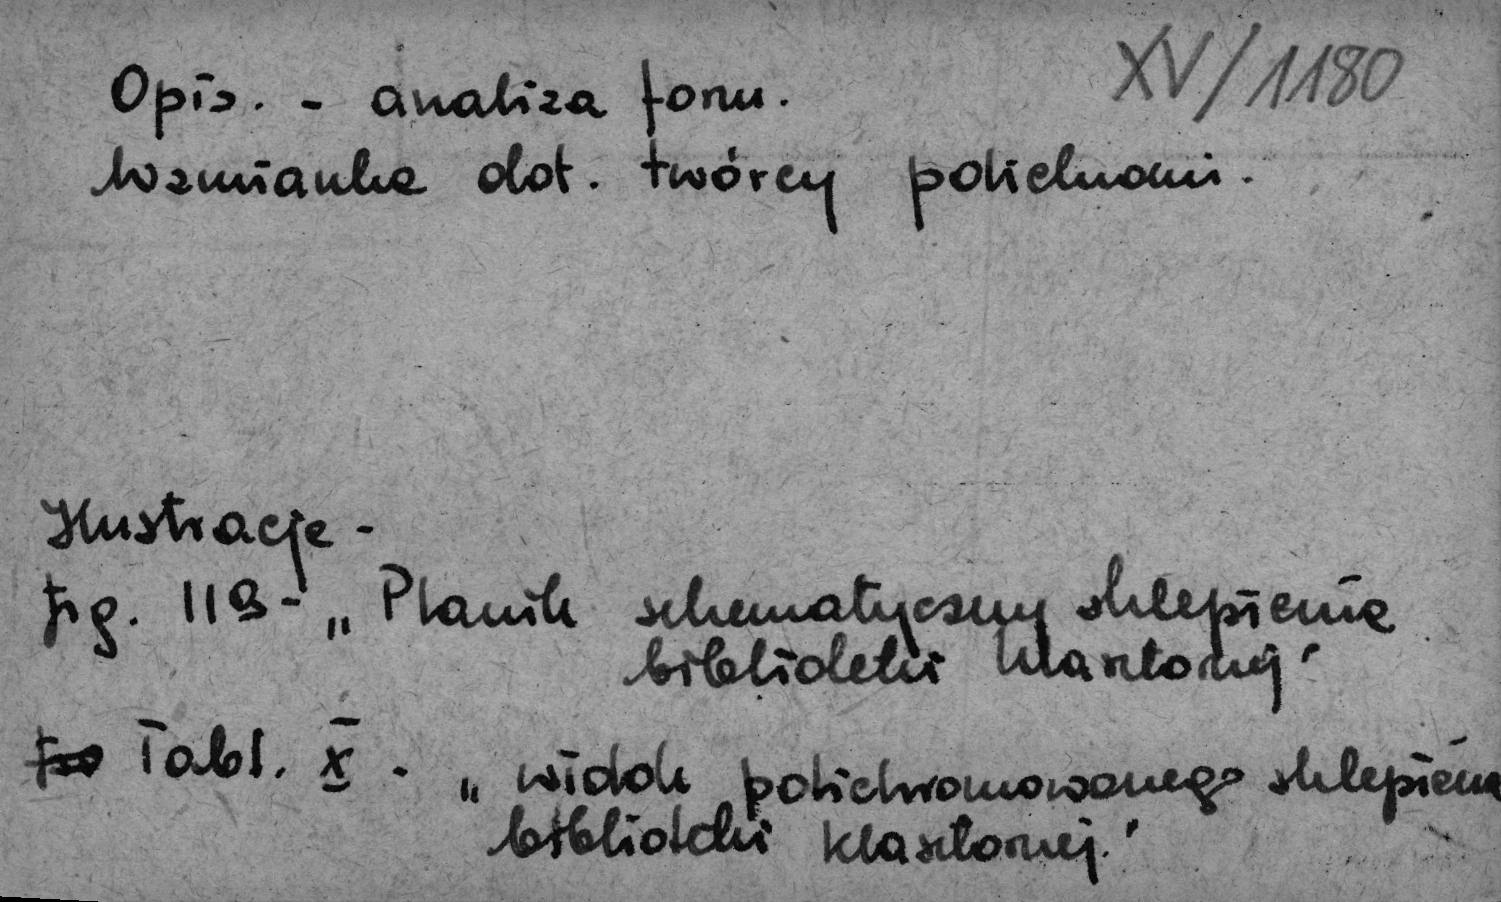 XV/1180
Opis. - analiza form.
Wzmianka dot. twórcy polichromi.
Ilustracje -
fig. 119 - „Planik schematyczny sklepienia
biblioteki klasztornej"
Tabl. X - „widok polichromowanego sklepienia
biblioteki klasztornej."